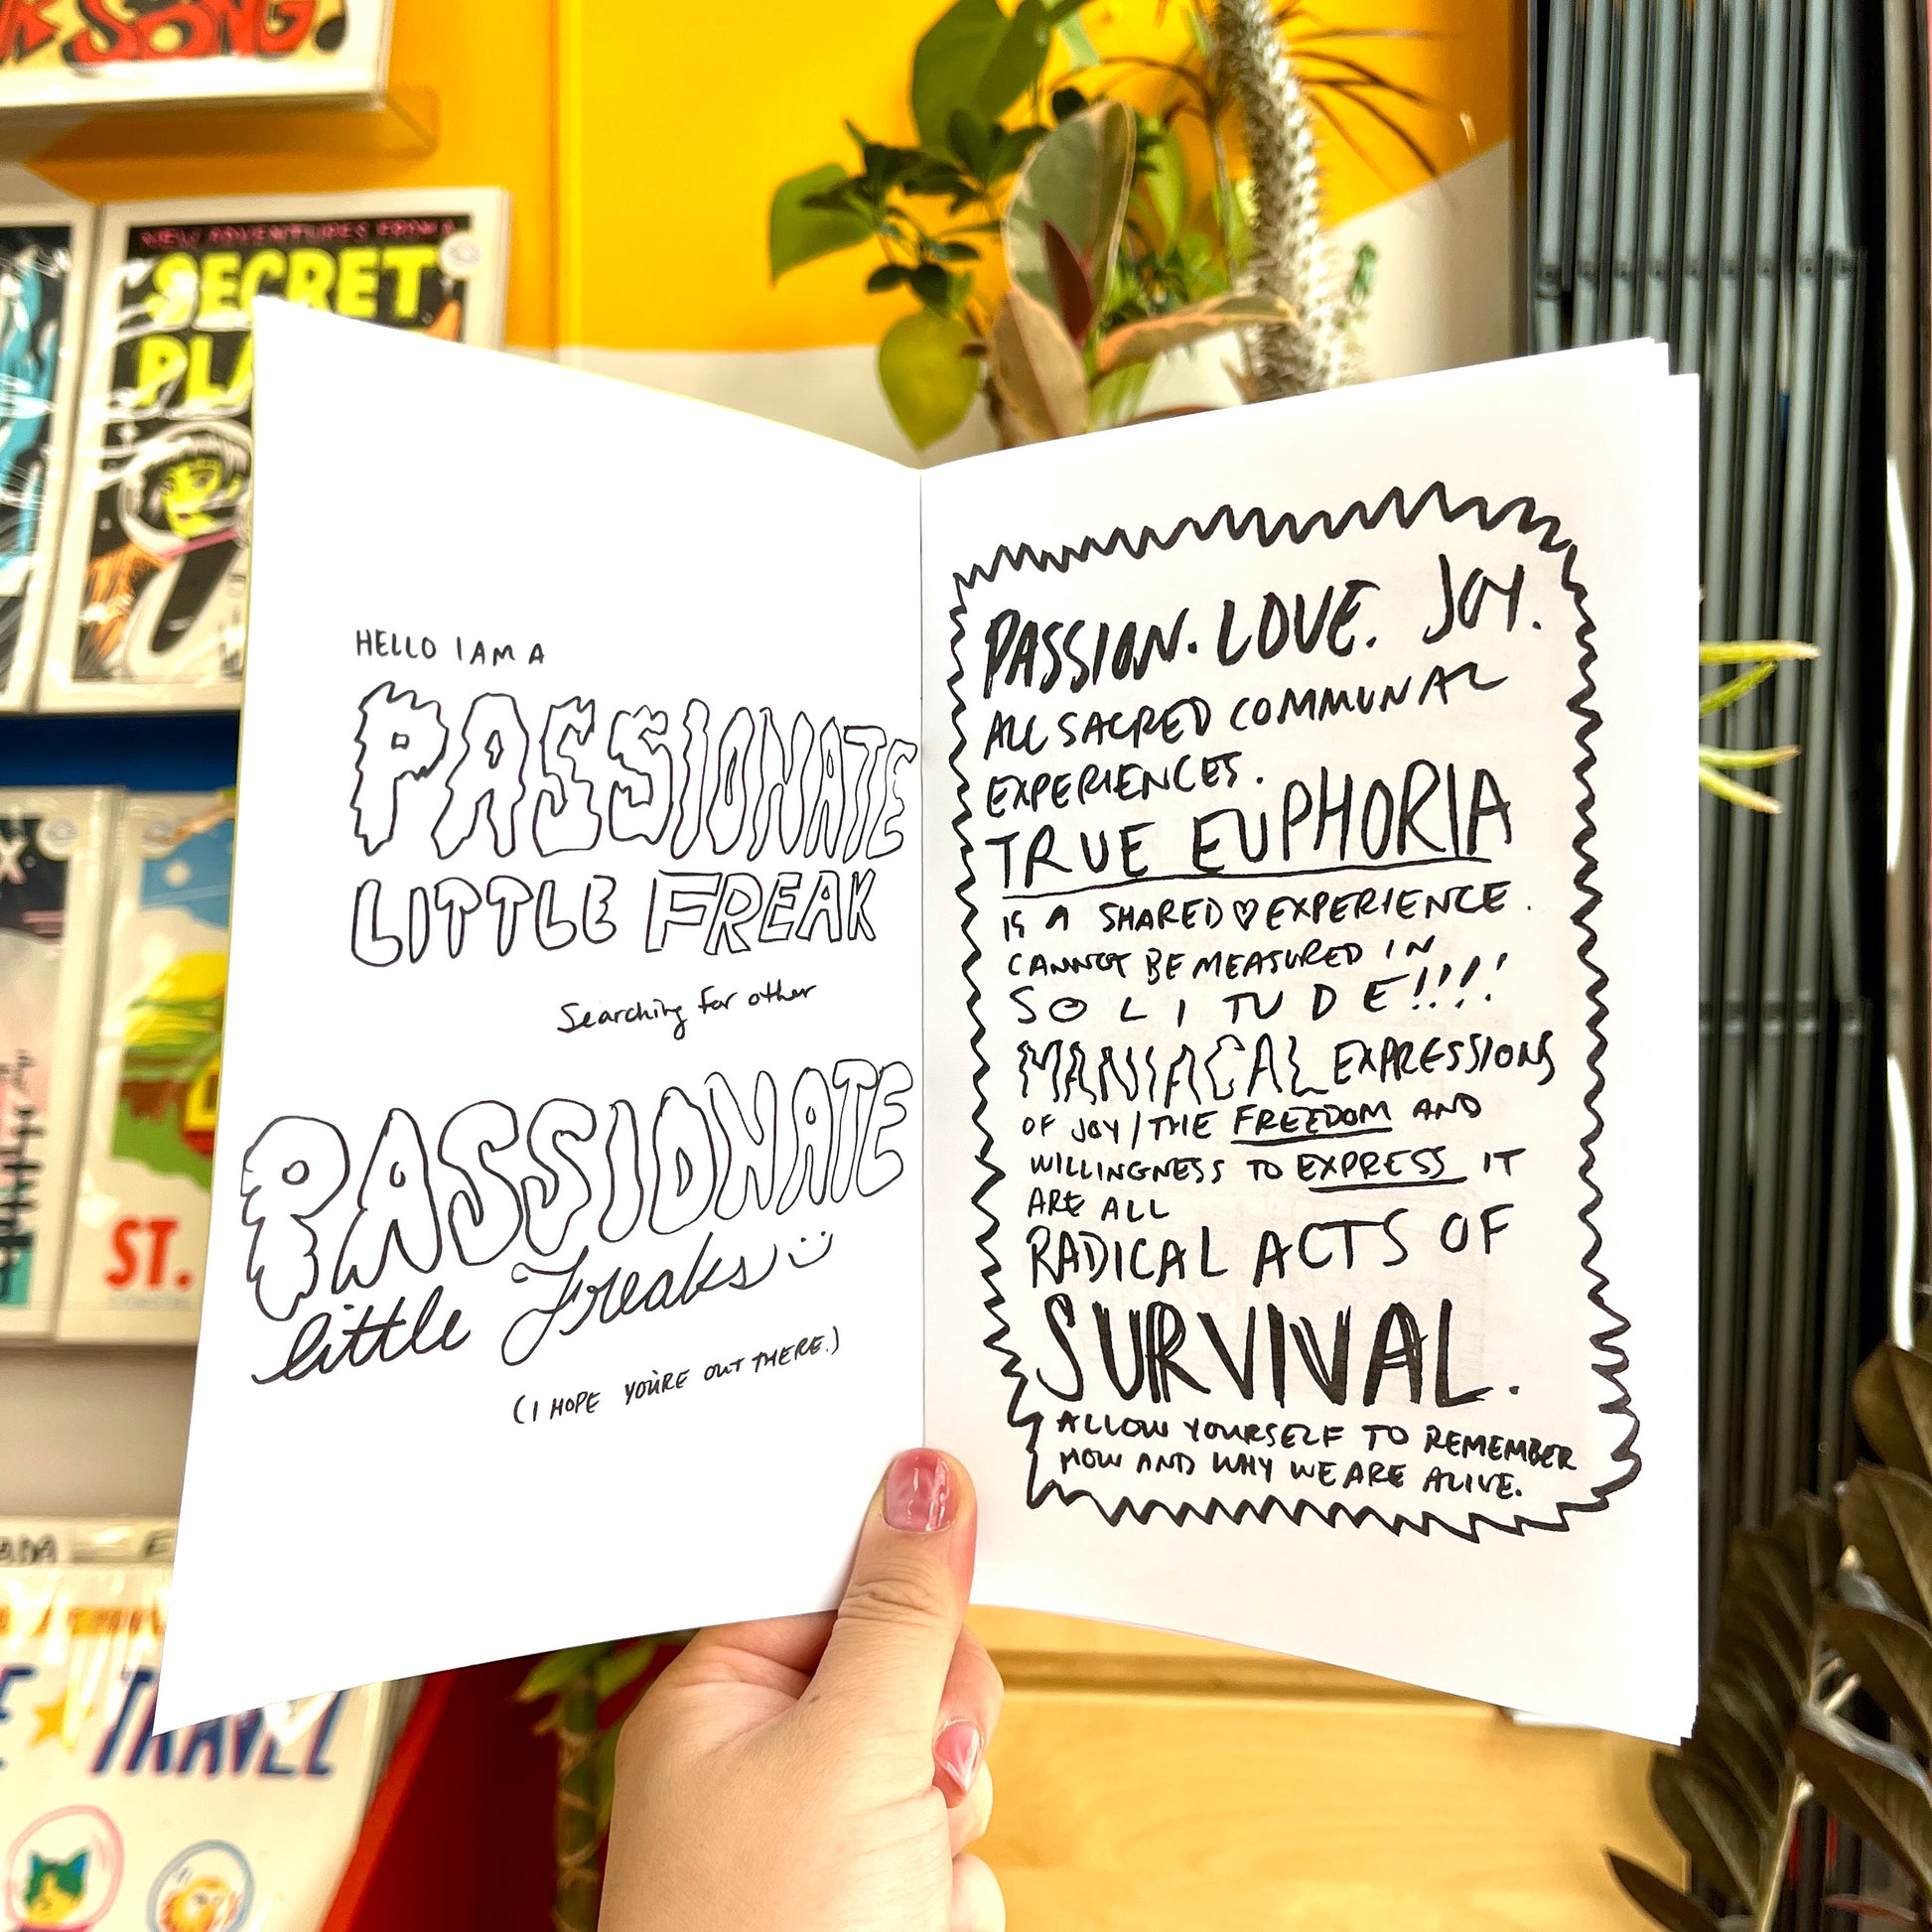 SONG
NEW ADVENTURES FROM A
SECRET
HELLO I AM A
PASSIONATE
LITTLE FREAK
Searching for other
PASSIONATE
little Freaks
(I HOPE YOU'RE OUT THERE.)
PASSION. LOVE. JOY.
ALL SACRED COMMUNAL
EXPERIENCES.
TRUE EUPHORIA
IS A SHARED ♡ EXPERIENCE.
CANNOT BE MEASURED IN
SOLITUDE!!!!
MANIACAL EXPRESSIONS
OF JOY/THE FREEDOM AND
WILLINGNESS TO EXPRESS IT
ARE ALL
RADICAL ACTS OF
SURVIVAL.
ALLOW YOURSELF TO REMEMBER
HOW AND WHY WE ARE ALIVE.
ST.
TRAVEL